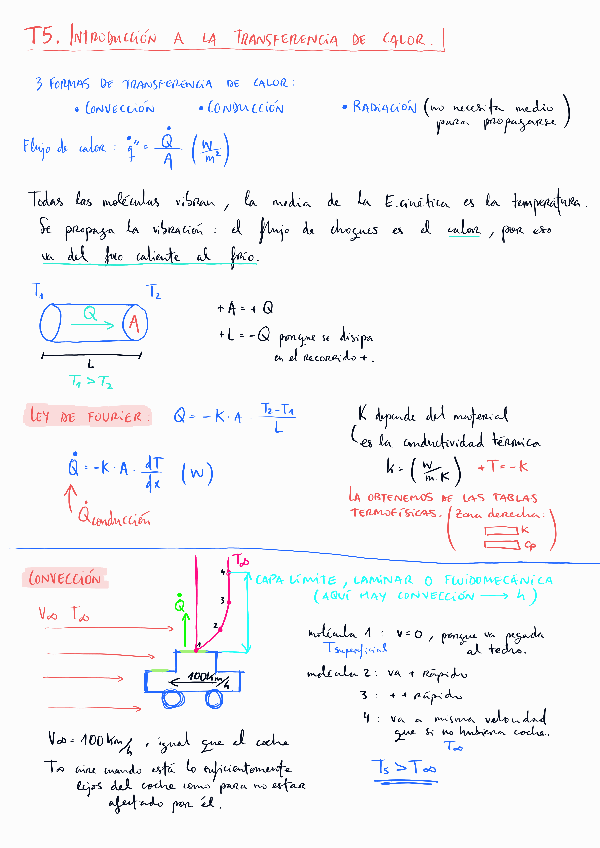 T5. INTRODUCCIÓN A LA TRANSFERENCIA DE CALOR.
3 FORMAS DE TRANSFERENCIA DE CALOR:
• CONVECCIÓN • CONDUCCIÓN • RADIACIÓN (no necesita medio para propagarse)
Flujo de calor: q̇" = Q̇/A (W/m²)
Todas las moléculas vibran, la media de la E.cinética es la temperatura.
Se propaga la vibración: el flujo de choques es el calor, por eso
va del foco caliente al frío.
T₁ T₂
Q A
L
T₁ > T₂
+A = +Q
+L = -Q porque se disipa
en el recorrido +.
LEY DE FOURIER. Q = -K·A (T₂-T₁)/L
Q̇ = -K·A· dT/dx (W)
Q̇conducción
K depende del material
es la conductividad térmica
k = (W/m·K) +T = -K
LA OBTENEMOS DE LAS TABLAS
TERMOFÍSICAS. (Zona derecha:
K
Cp)
CONVECCIÓN
V∞ T∞
Q̇
T∞
4
3
2
1
100km/h
CAPA LÍMITE, LAMINAR O FLUIDOMECÁNICA
(AQUÍ HAY CONVECCIÓN → h)
molécula 1: v=0, porque va pegada
al techo.
Tsuperficial
molécula 2: va + rápido
3: ++ rápido
4: va a misma velocidad
que si no hubiera coche.
T∞
Ts > T∞
V∞ = 100km/h, igual que el coche
T∞ aire cuando está lo suficientemente
lejos del coche como para no estar
afectado por él.